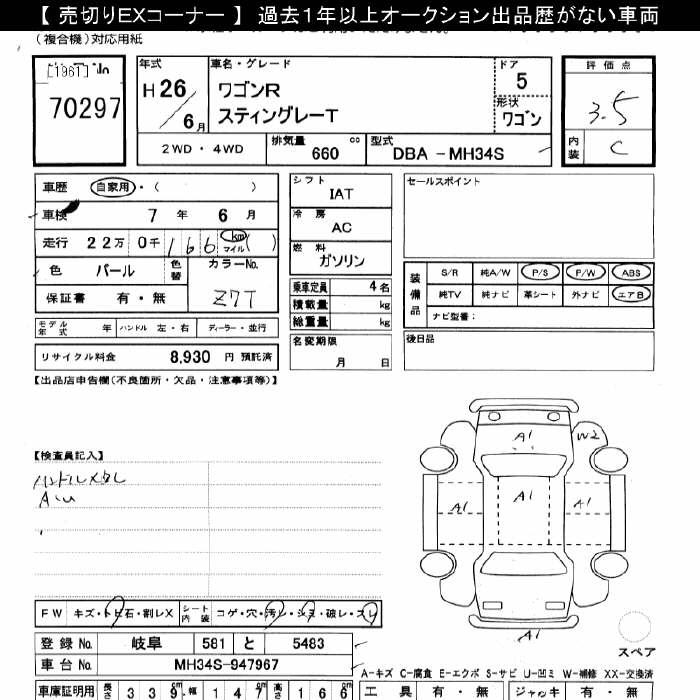 【 売切りEXコーナー 】 過去１年以上オークション出品歴がない車両
(複合機)対応用紙
[1961]
70297
年式
H 26 / 6 月
車名・グレード
ワゴンR
スティングレーT
ドア
5
形状
ワゴン
評価点
3.5
内装
C
2WD ・ 4WD
排気量
660 cc
型式
DBA －MH34S
車歴 自家用・( )
車検 7 年 6 月
走行 22万 0千 166 km マイル ( )
色 パール
色替
カラーNo.
Z7T
保証書 有・無
シフト
IAT
冷房
AC
燃料
ガソリン
乗車定員 4 名
積載量 kg
総重量 kg
名変期限
月 日
セールスポイント
装備品
S/R 純A/W P/S P/W ABS
純TV 純ナビ 革シート 外ナビ エアB
ナビ型番：
後日品
モデル年式 年 ハンドル 左・右 ディーラー・並行
リサイクル料金 8,930 円 預託済
【出品店申告欄(不良箇所・欠品・注意事項等)】
【検査員記入】
A1 W2
A1 A1 A1
A1
FW キズ・トビ石・割レX シート内装 コゲ・穴・汚レ・シミ・破レ・スレ
登録 No. 岐阜 581 と 5483
車台 No. MH34S-947967
スペア
A－キズ C－腐食 E－エクボ S－サビ U－凹ミ W－補修 XX－交換済
車庫証明用 長さ 3 3 9 cm 幅 1 4 7 cm 高さ 1 6 6 cm
工具 有・無 ジャッキ 有・無